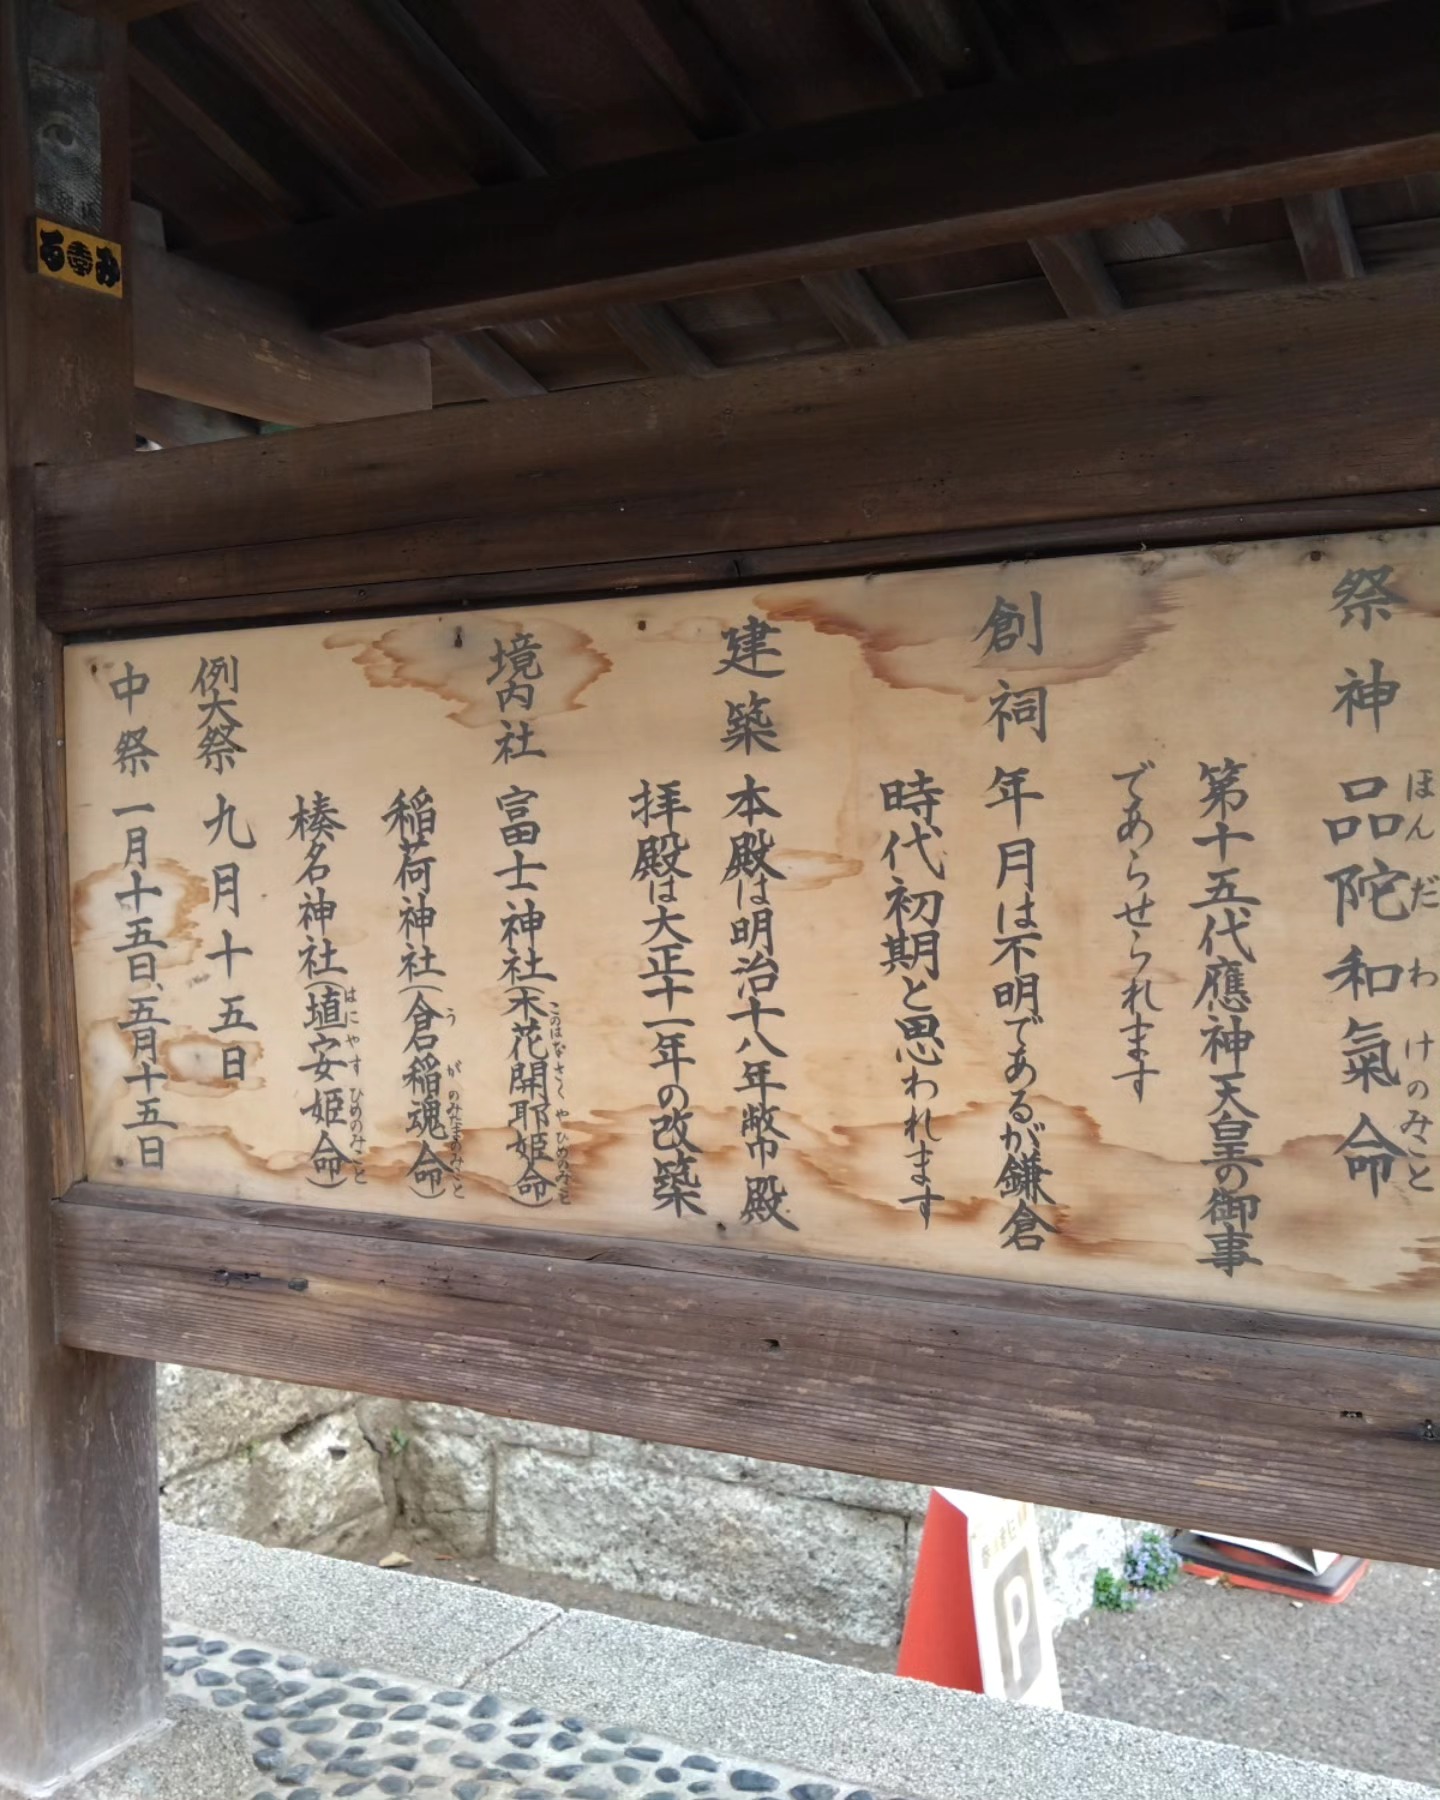 祭神 品陀和氣命
ほんだわけのみこと
第十五代應神天皇の御事
であらせられます
創祠 年月は不明であるが鎌倉
時代初期と思われます
建築 本殿は明治十八年幣殿
拝殿は大正十一年の改築
境内社 富士神社(木花開耶姫命)
このはなさくやひめのみこと
稲荷神社(倉稲魂命)
うがのみたまのみこと
榛名神社(埴安姫命)
はにやすひめのみこと
例大祭 九月十五日
中祭 一月十五日、五月十五日
P